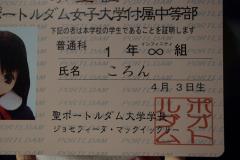 聖ポートルダム女子大学付属中等部
下記の者は本学校の学生であることを証明します
インフィニティ
普通科 1年∞組
氏名 ころん
4月3日生
聖ポートルダム大学学長
ジョセフィーヌ・マックイックリー
ポオト
ルダム
PORTLDAM